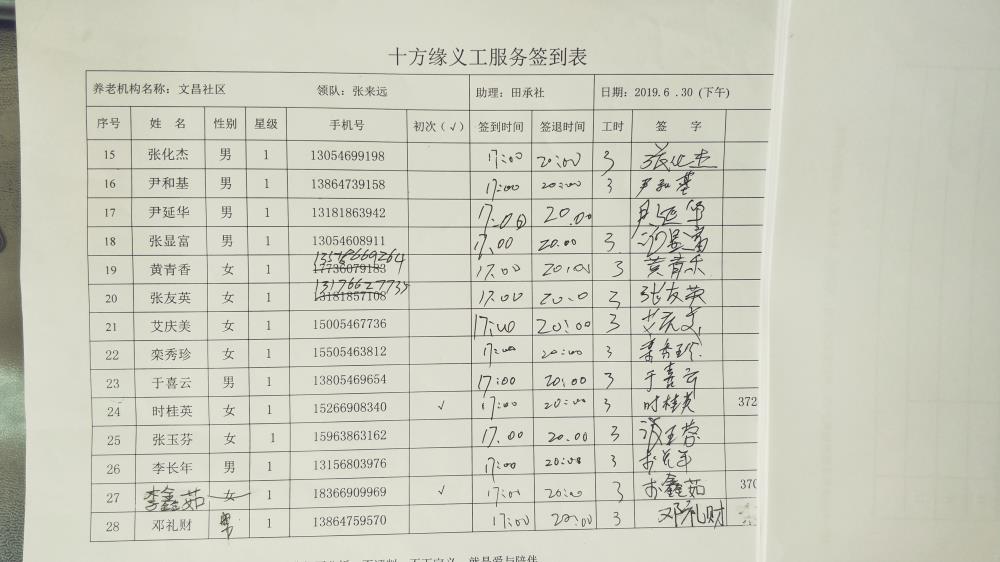 十方缘义工服务签到表
养老机构名称：文昌社区 领队：张来远 助理：田承社 日期：2019.6 .30 (下午)
序号 姓 名 性别 星级 手机号 初次（√） 签到时间 签退时间 工时 签 字
15 张化杰 男 1 13054699198 17:00 20:00 3 张化杰
16 尹和基 男 1 13864739158 17:00 20:00 3 尹和基
17 尹延华 男 1 13181863942 17:00 20.00 3 尹延华
18 张显富 男 1 13054608911 17.00 20.00 3 张显富
19 黄青香 女 1 17736079183 17.00 20:00 3 黄青香
20 张友英 女 1 13176627735 13181857108 17.00 20:0 3 张友英
21 艾庆美 女 1 15005467736 17:00 20:00 3 艾庆美
22 栾秀珍 女 1 15505463812 17:00 20:00 3 栾秀珍
23 于喜云 男 1 13805469654 17:00 20:00 3 于喜云
24 时桂英 女 1 15266908340 √ 17:00 20:00 3 时桂英 372
25 张玉芬 女 1 15963863162 17.00 20.00 3 张玉芬
26 李长年 男 1 13156803976 17:00 20:00 3 李长年
27 李鑫茹 女 1 18366909969 √ 17:00 20:00 3 李鑫茹 370
28 邓礼财 男 1 13864759570 17:00 20:00 3 邓礼财
就是爱与陪伴